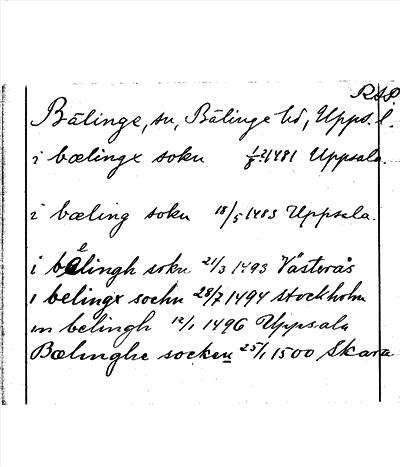 RAP
Bälinge, sn, Bälinge hd, Upps. l.
i bælinge soku 1481 Uppsala.
i bæling soku 18/5 1483 Uppsala.
i bélingh soku 21/3 1493 Västerås
i belinge sochn 28/7 1494 Stockholm
m belingh 12/1 1496 Uppsala
Bælinghe socken 25/1 1500 Skara